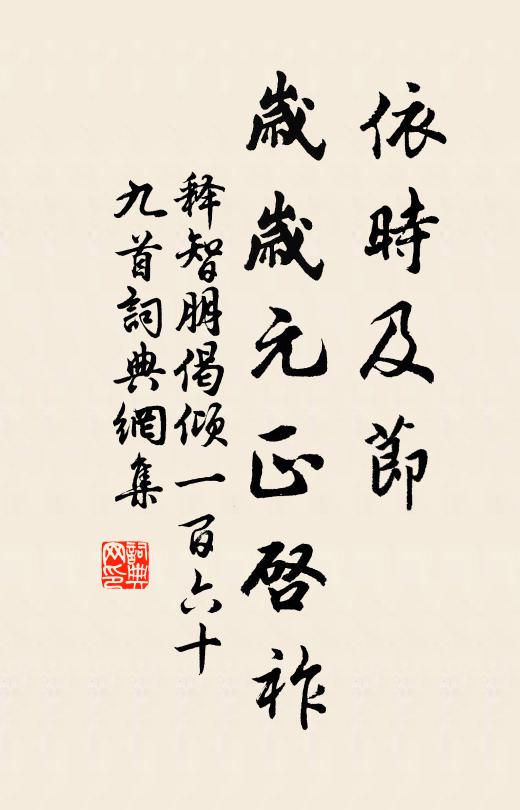 依時及節
歲歲元正啓祚
释智朋偈倾一百六十
九首詞典網集
詞典网印